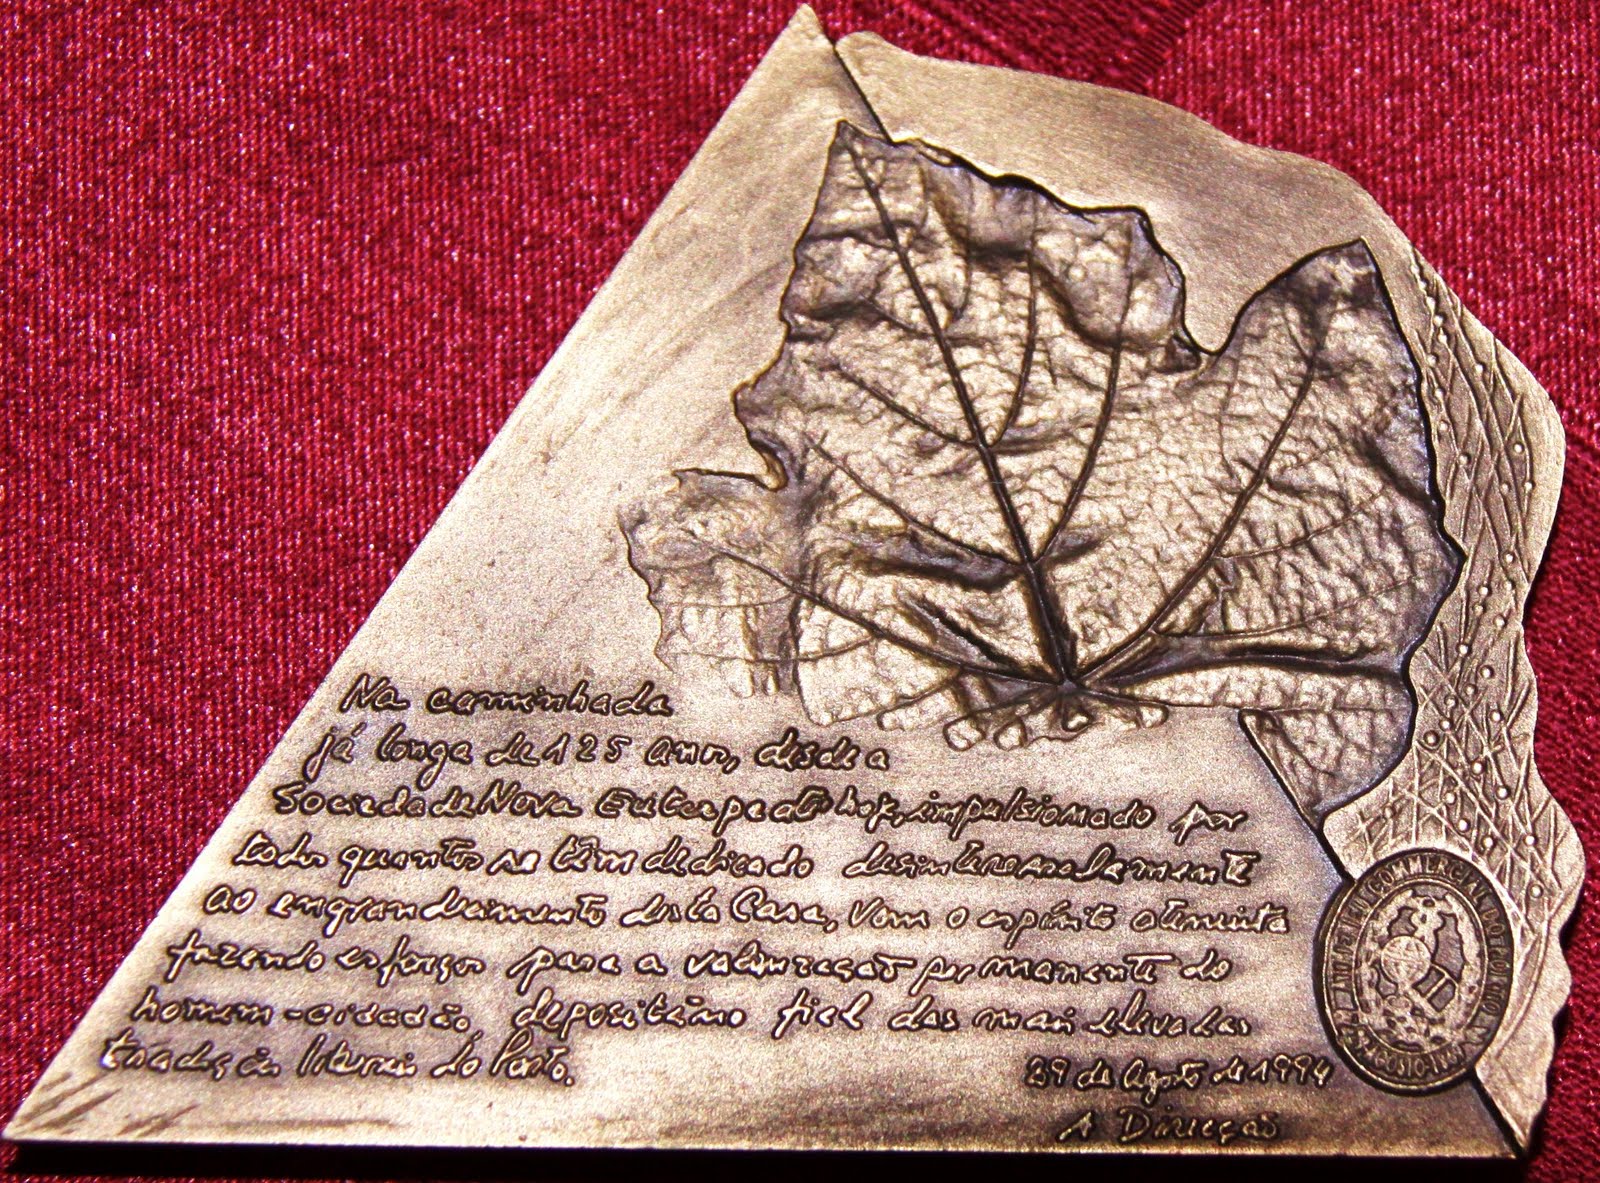 Na caminhada
já longa de 125 anos, desde a
Sociedade Nova Euterpe até hoje, impulsionado por
todos quantos se têm dedicado desinteressadamente
ao engrandecimento desta Casa, vem o espírito ateneista
fazendo esforços para a valorização permanente do
homem-cidadão, depositário fiel das mais elevadas
tradições liberais do Porto.
29 de Agosto de 1994
A Direcção
ATENEU COMMERCIAL DO PORTO